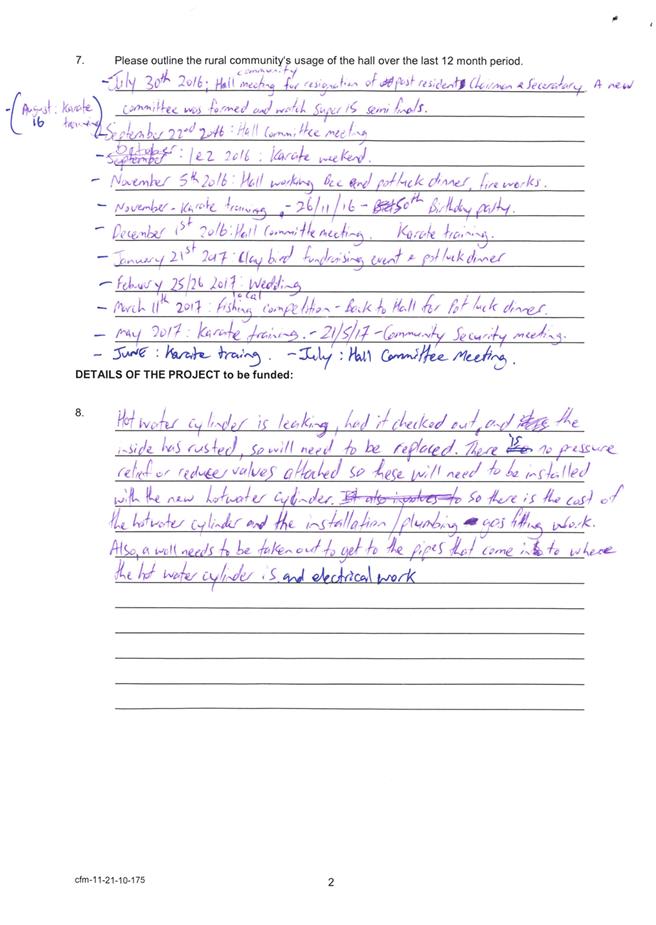 7. Please outline the rural community's usage of the hall over the last 12 month period.
community
- July 30th 2016: Hall meeting for resignation of past resident Chairman & Seceratary. A new
- (August: Karate 16 training) committee was formed and watch super 15 semi finals.
- September 22nd 2016: Hall Committee meeting
October
- September: 1&2 2016: Karate weekend.
- November 5th 2016: Hall working Bee and potluck dinner, fireworks.
- November - Karate training. - 26/11/16 - 50th Birthday party.
- December 1st 2016: Hall Committe meeting. Karate training.
- January 21st 2017: Clay bird fundraising event & potluck dinner
- Febuary 25/26 2017: Wedding
local
- March 11th 2017: Fishing competition - Back to Hall for Pot luck dinner.
- May 2017: Karate training. - 21/5/17 - Community Security meeting.
- JUNE: Karate traing. - July: Hall Committee Meeting.
DETAILS OF THE PROJECT to be funded:
8. Hot water cylinder is leaking, had it checked out, and the
inside has rusted, so will need to be replaced. There is no pressure
relief or reducer valves attached so these will need to be installed
with the new hotwater cylinder. It also involves to so there is the cost of
the hotwater cylinder and the installation/plumbing gas fitting work.
Also, a wall needs to be taken out to get to the pipes that come into where
the hot water cylinder is and electrical work
cfm-11-21-10-175
2